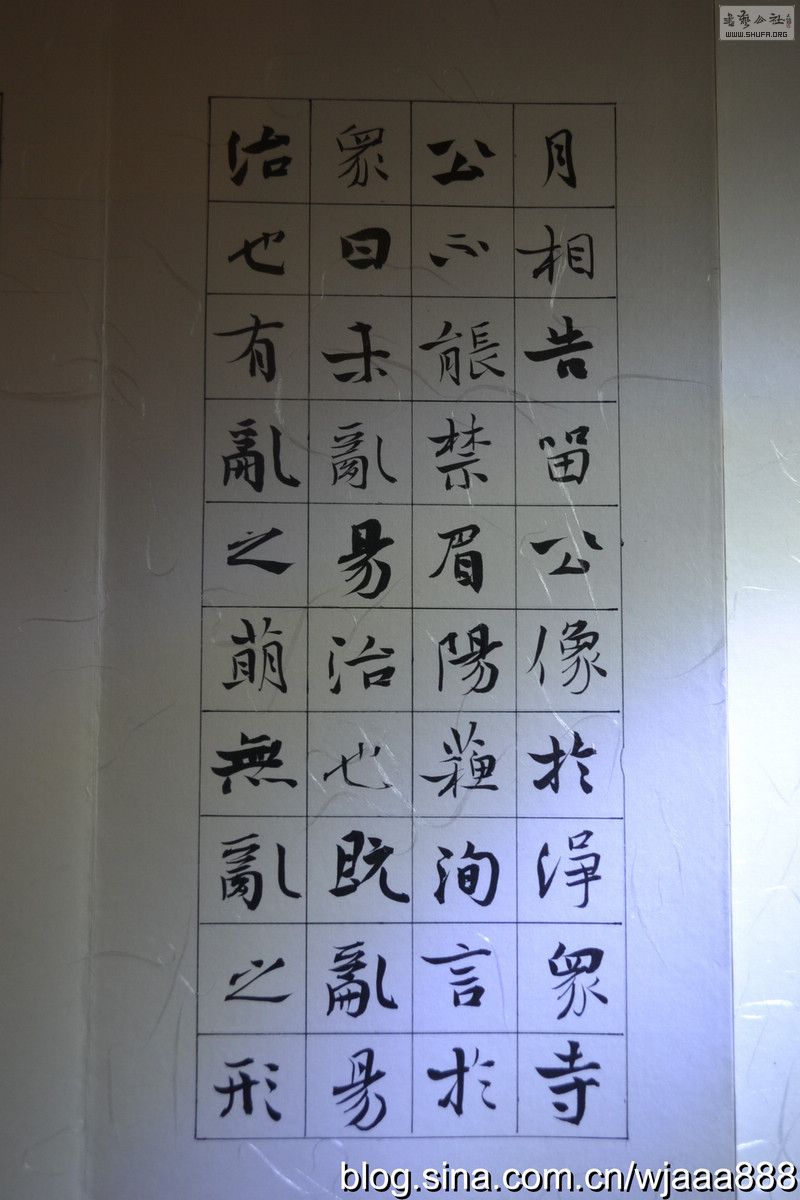 月相告留公像於淨眾寺
公不能禁眉陽蘓洵言於
眾曰未亂易治也既亂易
治也有亂之萌無亂之形
書藝公社
WWW.SHUFA.ORG
blog.sina.com.cn/wjaaa888